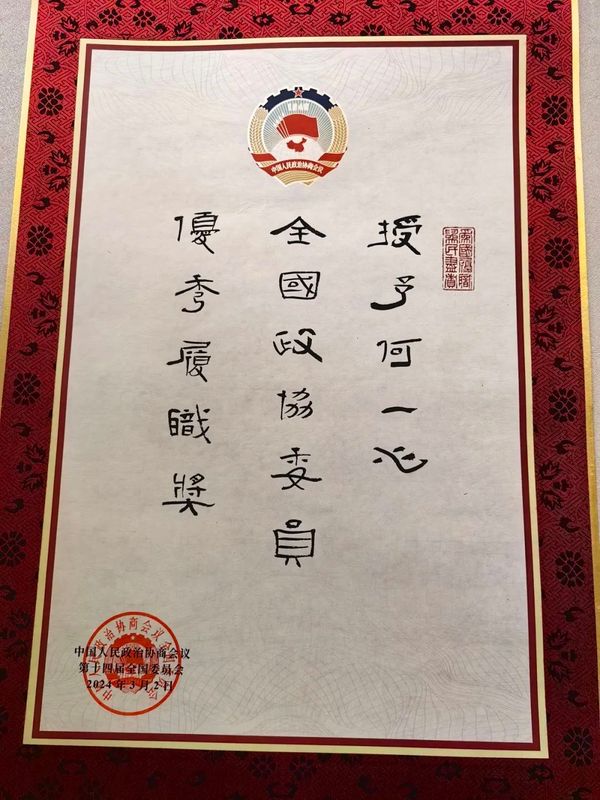 中国人民政治协商会议
為國履職
為民盡責
授予何一心
全國政協委員
優秀履職獎
中国人民政治协商会议
第十四届全国委员会
2024年3月2日